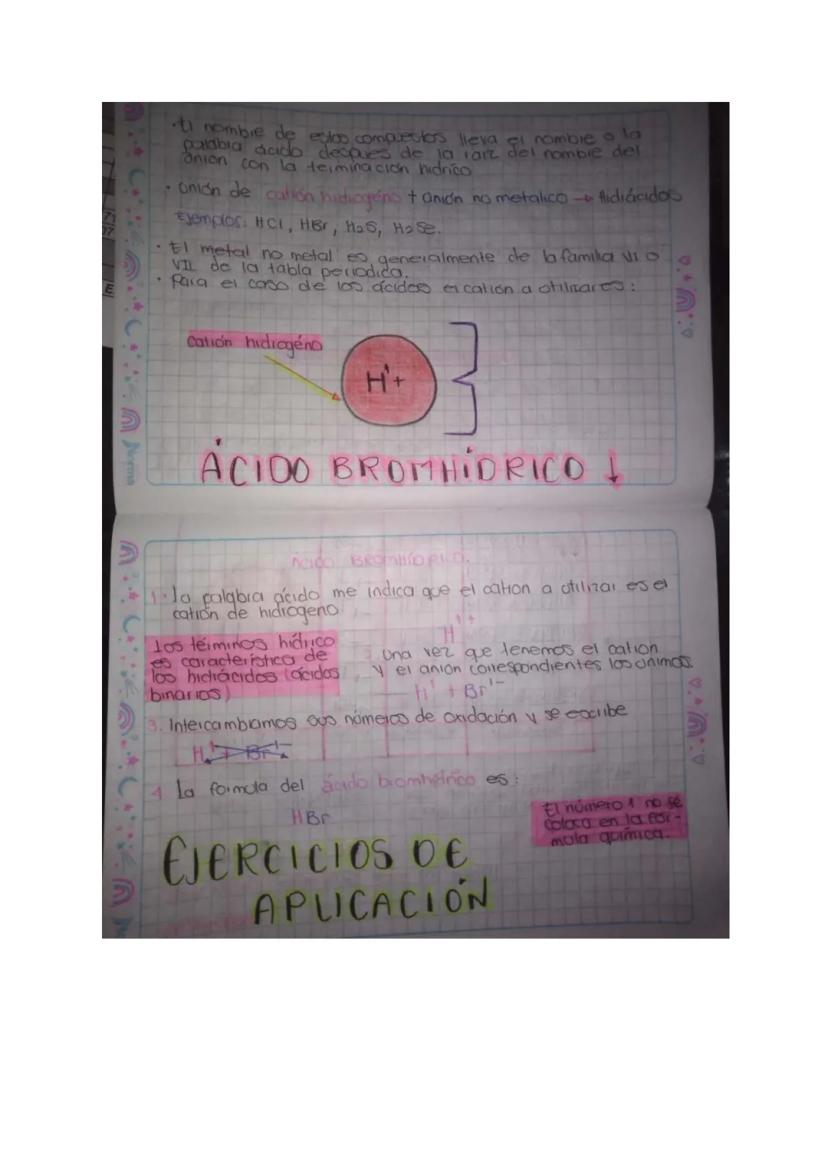 · El nombre de estos compuestos lleva el nombre o la
palabra ácido después de la raíz del nombre del
anión con la terminación hídrico
· Unión de catión hidrogéno + anión no metalico → Hidrácidos
Ejemplos: HCl, HBr, H2S, H2Se.
· El metal no metal es generalmente de la familia VI o
VII de la tabla periodica.
· Para el caso de los ácidos el catión a utilizar es:
catión hidrogéno
H1+
ÁCIDO BROMHÍDRICO ↓
Norma
ÁCIDO BROMHÍDRICO.
1. la palabra ácido me indica que el cation a utilizar es el
catión de hidrogeno
H1+
Los términos hídrico
es característica de
los hidrácidos (ácidos
binarios)
una vez que tenemos el cation
y el anión correspondientes los unimos
H1 + Br1-
3. Intercambiamos sus números de oxidación y se escribe
H1+ Br1-
4 La formula del ácido bromhídrico es:
HBr
El número 1 no se
coloca en la for-
mula química.
EJERCICIOS DE
APLICACIÓN